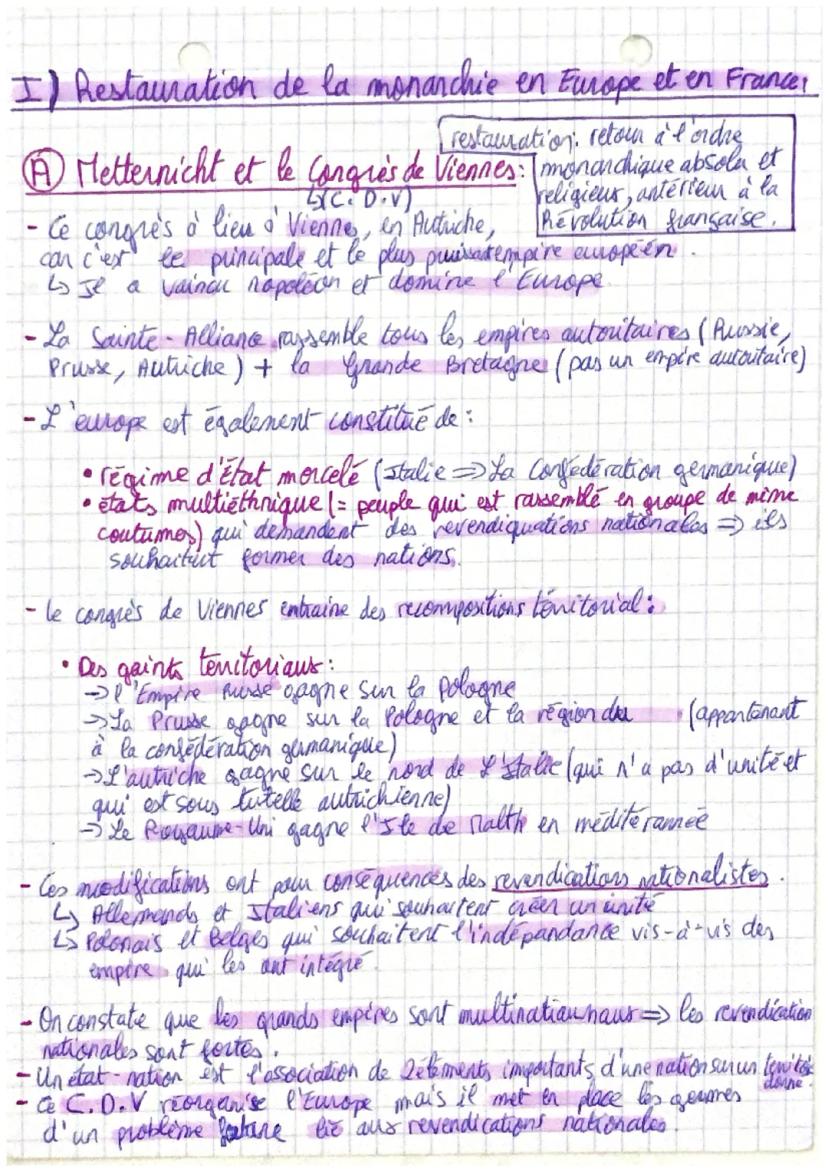 I) Restauration de la monarchie en Europe et en France,
restauration: retour à l'ordre
monarchique absolu et
religieux, antérieur à la
Révolution française.
(A) Metternicht et le Congrès de Viennes:
↳(C.D.V)
- Ce congrès à lieu à Viennes, en Autriche,
car c'est le principale et le plus puissant empire européen.
↳ Il a vaincu napoléon et domine l'Europe
- La Sainte-Alliance rassemble tous les empires autoritaires (Russie,
Prusse, Autriche) + la Grande Bretagne (pas un empire autoritaire)
- L'europe est également constitué de:
• régime d'État morcelé (Italie => La Confédération germanique)
• états multiéthnique (= peuple qui est rassemblé en groupe de même
coutumes) qui demandent des revendiquations nationales => ils
souhaitent former des nations.
- le congrès de Viennes entraine des recompositions térritorial:
• Des gaints territoriaux:
-> l'Empire Russe gagne sur la Pologne
-> La Prusse gagne sur la Pologne et la région du (appartenant
à la confédération germanique)
-> L'autriche gagne sur le nord de L'Italie (qui n'a pas d'unité et
qui est sous tutelle autrichienne)
-> Le Royaume-Uni gagne l'Ile de Malth en méditérannée
- Ces modifications ont pour conséquences des revendications nationalistes.
↳ Allemands et Italiens qui souhaitent créer un unité
↳ Polonais et Belges qui souhaitent l'indépandance vis-à-vis des
empire qui les ont intégré.
- On constate que les grands empires sont multinationnaux => les revendication
nationales sont fortes.
- Un état-nation est l'association de 2 éléments importants d'une nation sur un territoire
donné.
- Ce C.D.V réorganise l'Europe mais il met en place les germes
d'un problème future lié aux revendications nationales.